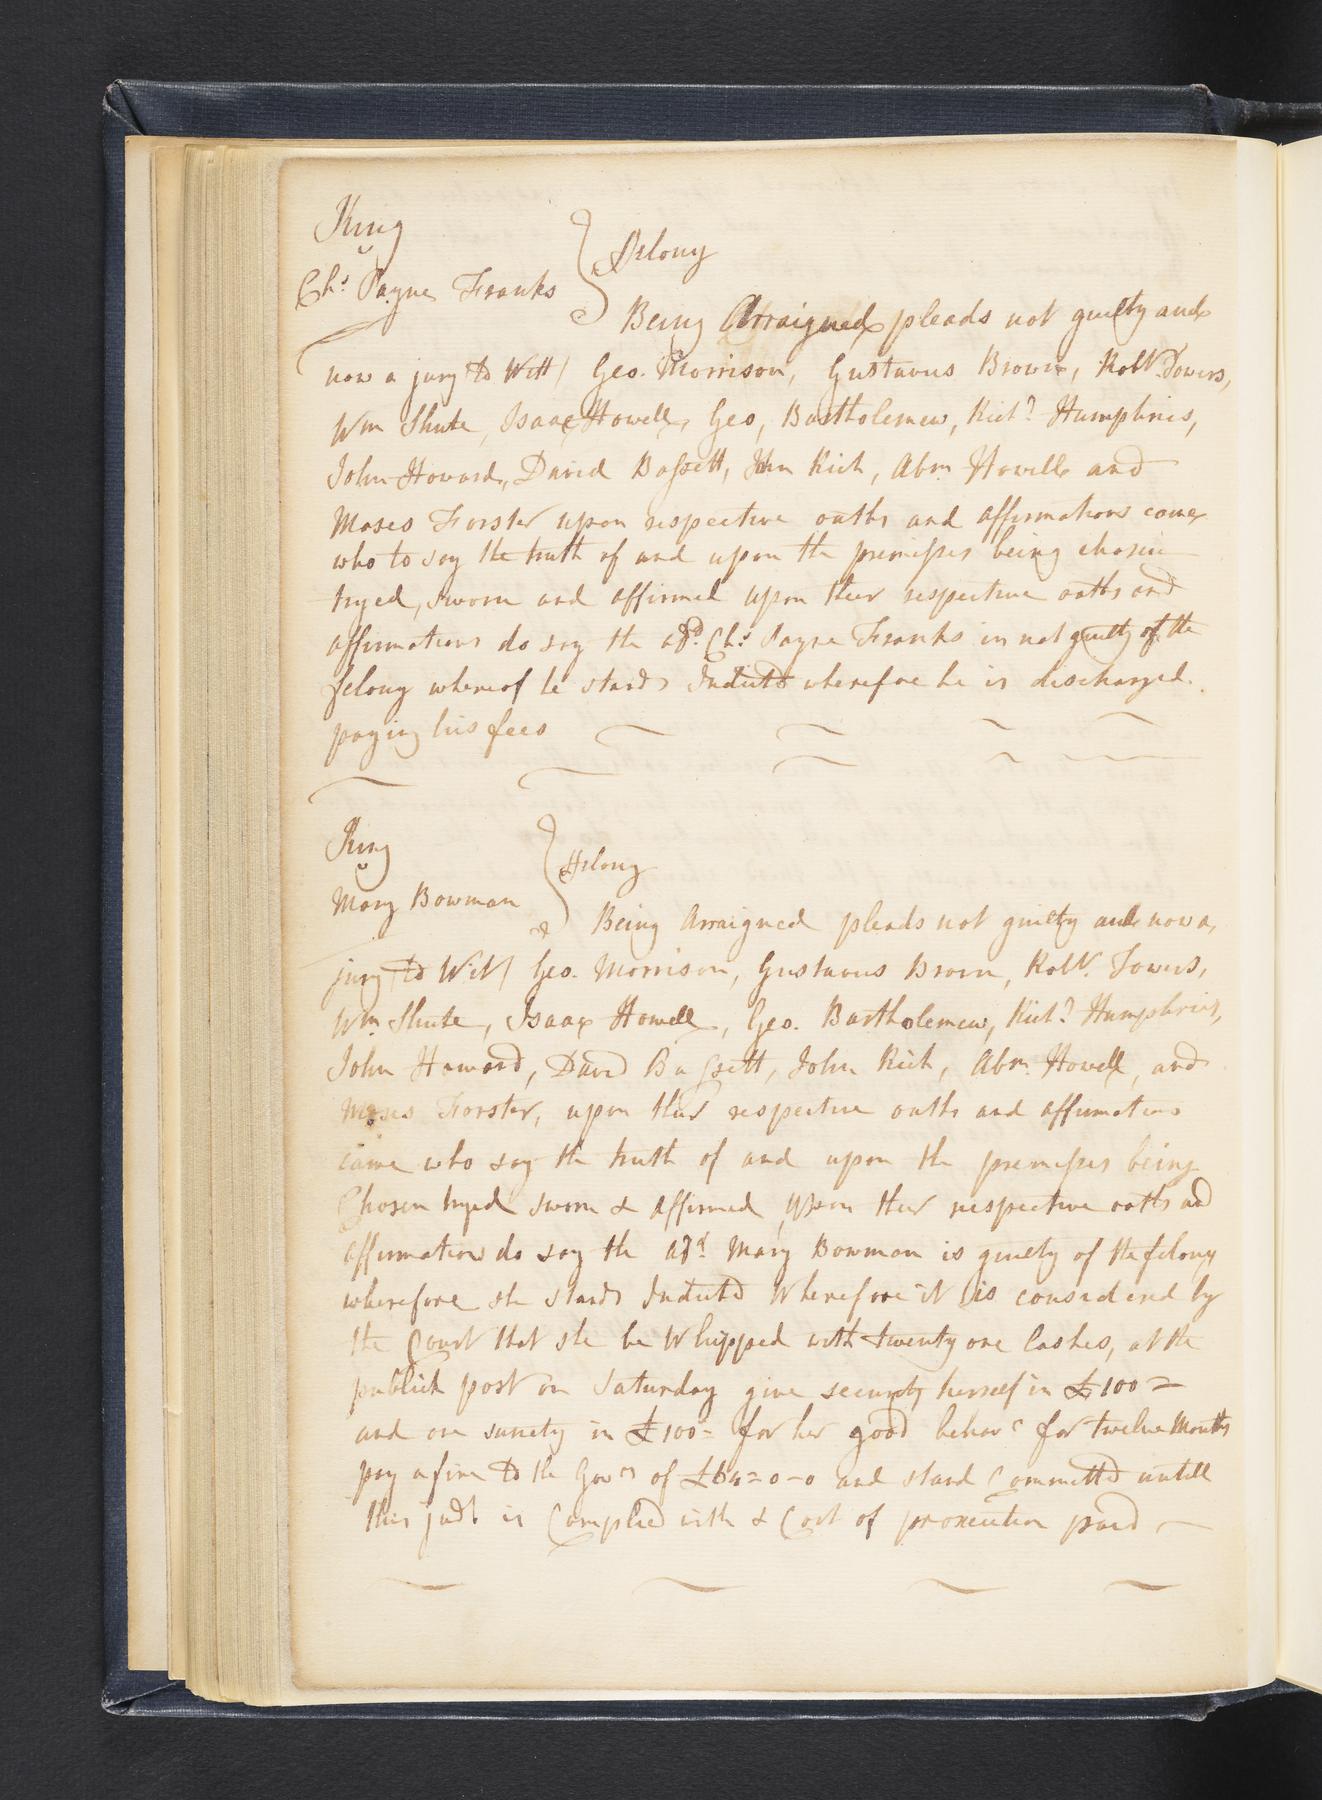 King
v
Chs. Payne Franks } Felony
Being Arraigned pleads not guilty and
now a jury to Witt/ Geo. Morrison, Gustavus Brown, Robt. Towers,
Wm Shute, Isaac Howell, Geo, Bartholemew, Richd. Humphries,
John Howard, David Bassett, John Rich, Abm. Howell and
Moses Forster upon respective oaths and affirmations come
who to say the truth of and upon the premisses being chosen
tryed, sworn and affirmed upon their respective oaths and
affirmations do say the afsd. Chs. Payne Franks is not guilty of the
felony whereof he stands Indicted wherefore he is discharged.
paying his fees
King
v
Mary Bowman } Felony
Being Arraigned pleads not guilty and now a,
jury to Witt/ Geo. Morrison, Gustavus Brown, Robt. Towers,
Wm Shute, Isaac Howell, Geo. Bartholemew, Richd. Humphries,
John Howard, David Bassett, John Rich, Abm. Howell, and
Moses Forster, upon their respective oaths and affirmations
came who say the truth of and upon the premisses being
Chosen tryed sworn & affirmed upon their respective oaths and
affirmations do say the afsd. Mary Bowman is guilty of the felony
wherefore she stands Indicted Wherefore it is considered by
the Court that she be Whipped with twenty one lashes, at the
publick post on Saturday give security herself in £100=
and one surety in £100= for her good behavr for twelve Months
pay a fine to the Govr of and stand Committed untill
this judt is Complied with & Cost of prosecution paid